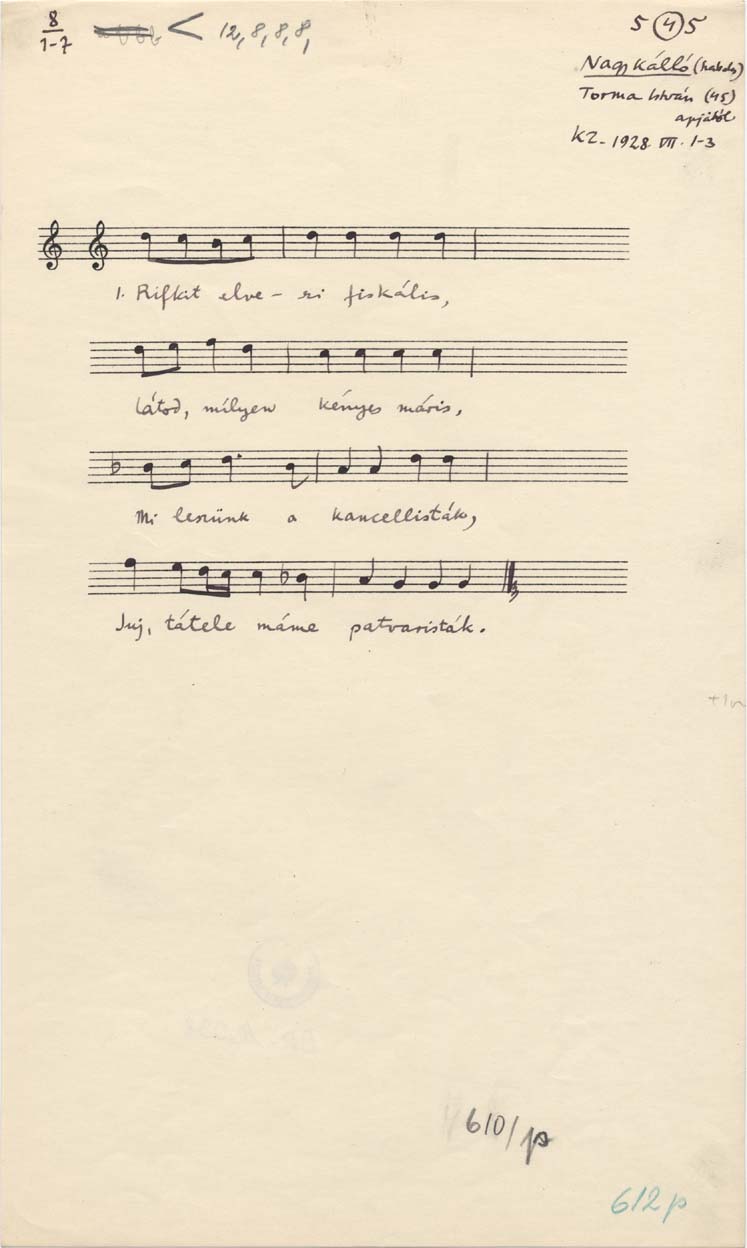 8
1-7
< 12, 8, 8, 8,
5 (4) 5
Nagykálló (Szabolcs)
Torma István (45)
apjától
KZ. 1928. VII. 1-3
1. Rifkit elve - ri fiskális,
látod, mílyen kényes máris,
Mi leszünk a kancellisták,
Juj, tátele máme patvaristák.
610/p
612 p